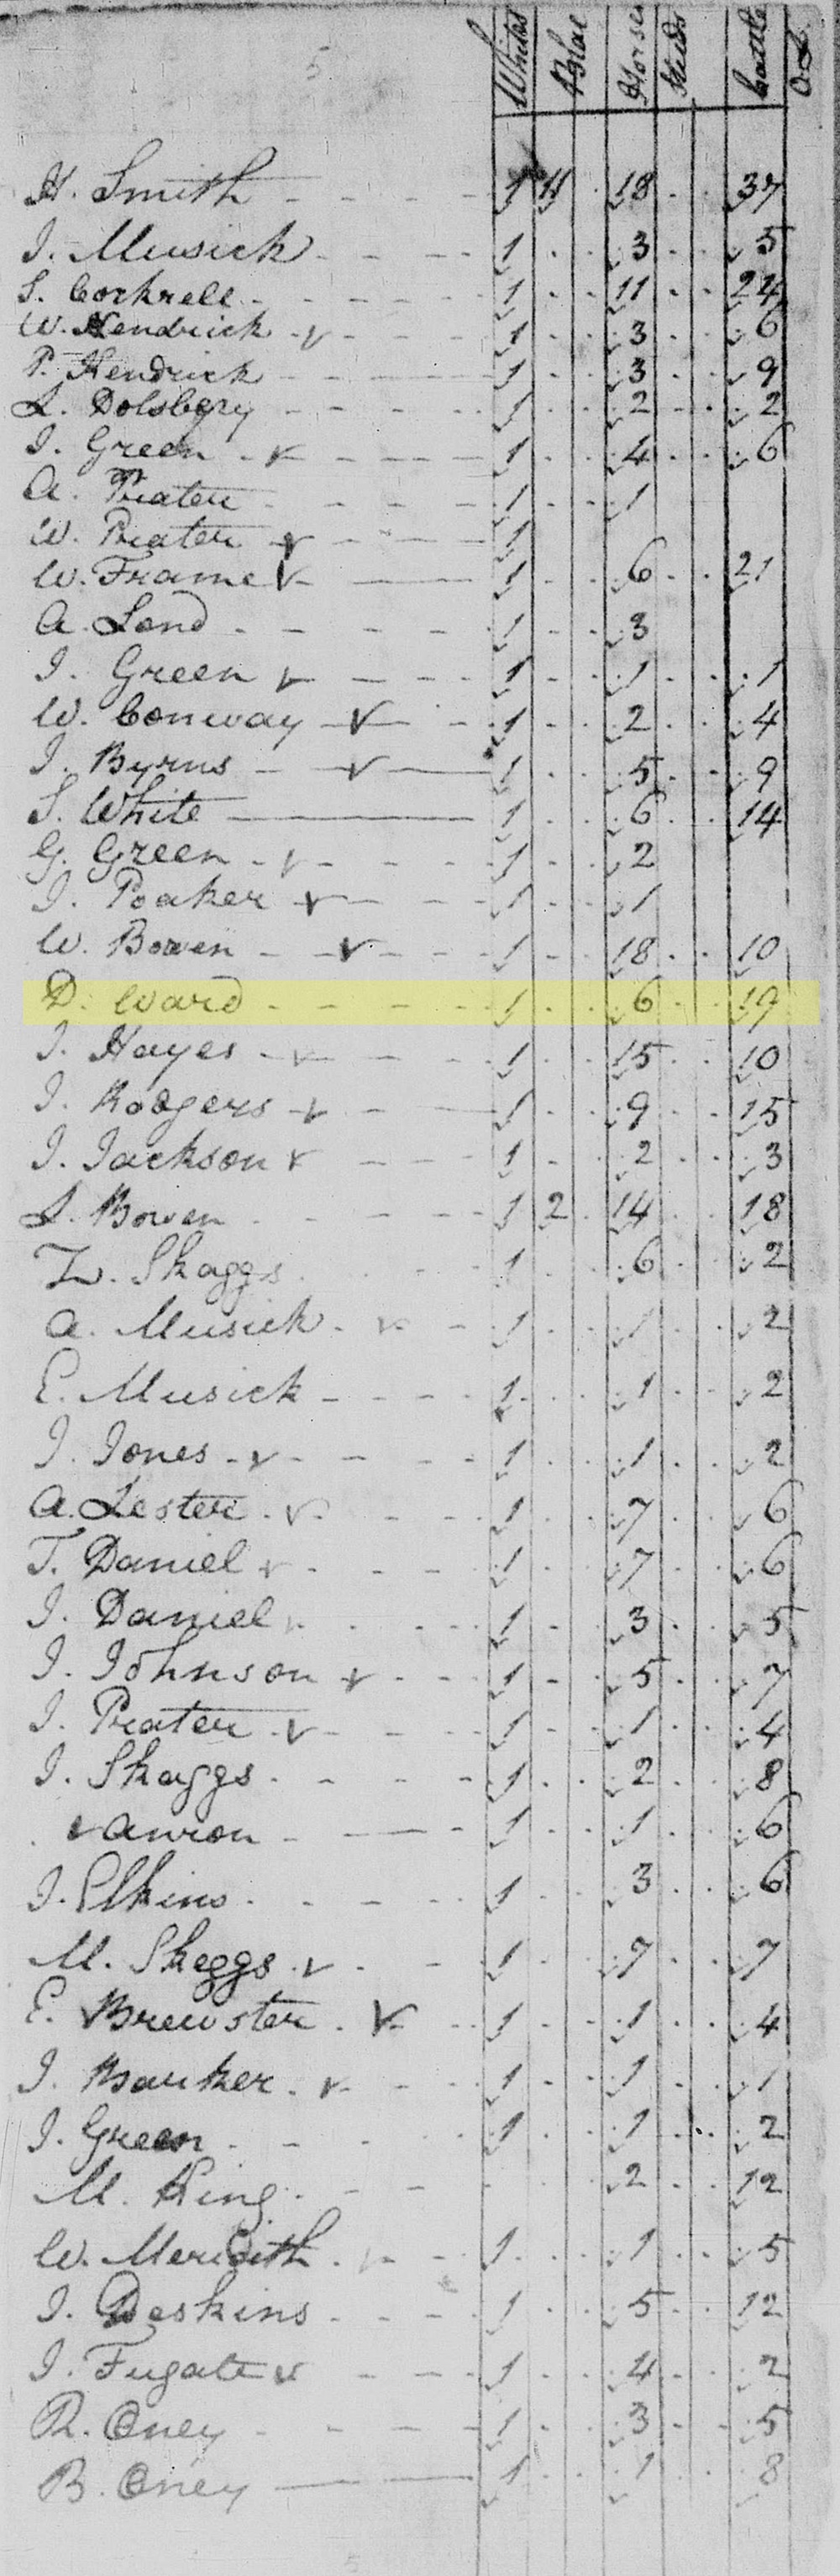 5
Whites Blac Horses Studs Cattle
H. Smith 1 11 18 37
J. Musick 1 3 5
S. Cockrell 1 11 24
W. Hendrick 1 3 6
P. Hendrick 1 3 9
L. Dolsbery 1 2 2
J. Green 1 4 6
A. Prater 1 1
W. Prater 1
W. Frame 1 6 21
A. Land 1 3
J. Green 1 1 1
W. Conway 1 2 4
J. Byrns 1 5 9
S. White 1 6 14
G. Green 1 2
J. Poaker 1 1
W. Bowen 1 18 10
D. Ward 1 6 19
J. Hayes 1 15 10
J. Rodgers 1 9 15
J. Jackson 1 2 3
L. Bowen 1 2 14 18
Z. Skaggs 1 6 2
A. Musick 1 1 2
E. Musick 1 1 2
J. Jones 1 1 2
A. Lester 1 7 6
T. Daniel 1 7 6
J. Daniel 1 3 5
J. Johnson 1 5 7
J. Prater 1 1 4
J. Skaggs 1 2 8
1 1 6
J. Elkins 1 3 6
M. Skeggs 1 7 7
E. Brewster 1 1 4
J. Barker 1 1 1
J. Green 1 1 2
M. King 2 12
W. Meridith 1 1 5
J. Deskins 1 5 12
J. Fugate 1 4 2
R. Oney 1 3 5
B. Oney 1 1 8